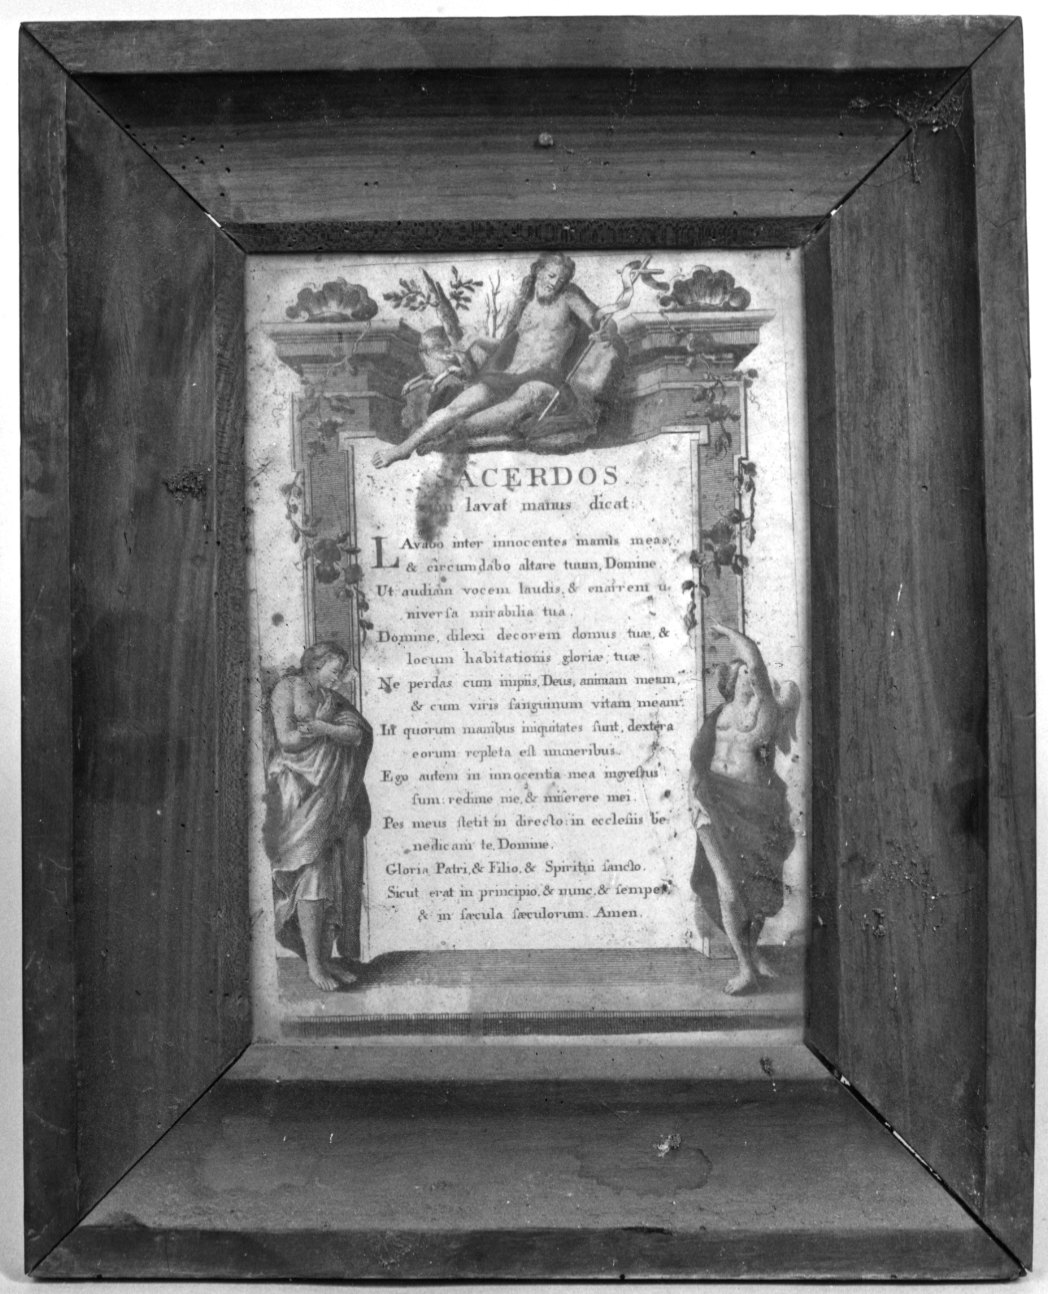 SACERDOS
lavat manus dicat
LAvabo inter innocentes manus meas,
& circumdabo altare tuum, Domine
Ut audiam vocem laudis, & enarrem u
niversa mirabilia tua.
Domine, dilexi decorem domus tuæ, &
locum habitationis gloriæ tuæ.
Ne perdas cum impiis, Deus, animam meam,
& cum viris sanguinum vitam meam.
In quorum manibus iniquitates sunt, dextera
eorum repleta est muneribus.
Ego autem in innocentia mea ingressus
sum: redime me, & miserere mei.
Pes meus stetit in directo: in ecclesiis be
nedicam te, Domine.
Gloria Patri, & Filio, & Spiritui sancto.
Sicut erat in principio, & nunc, & semper
& in sæcula sæculorum. Amen.